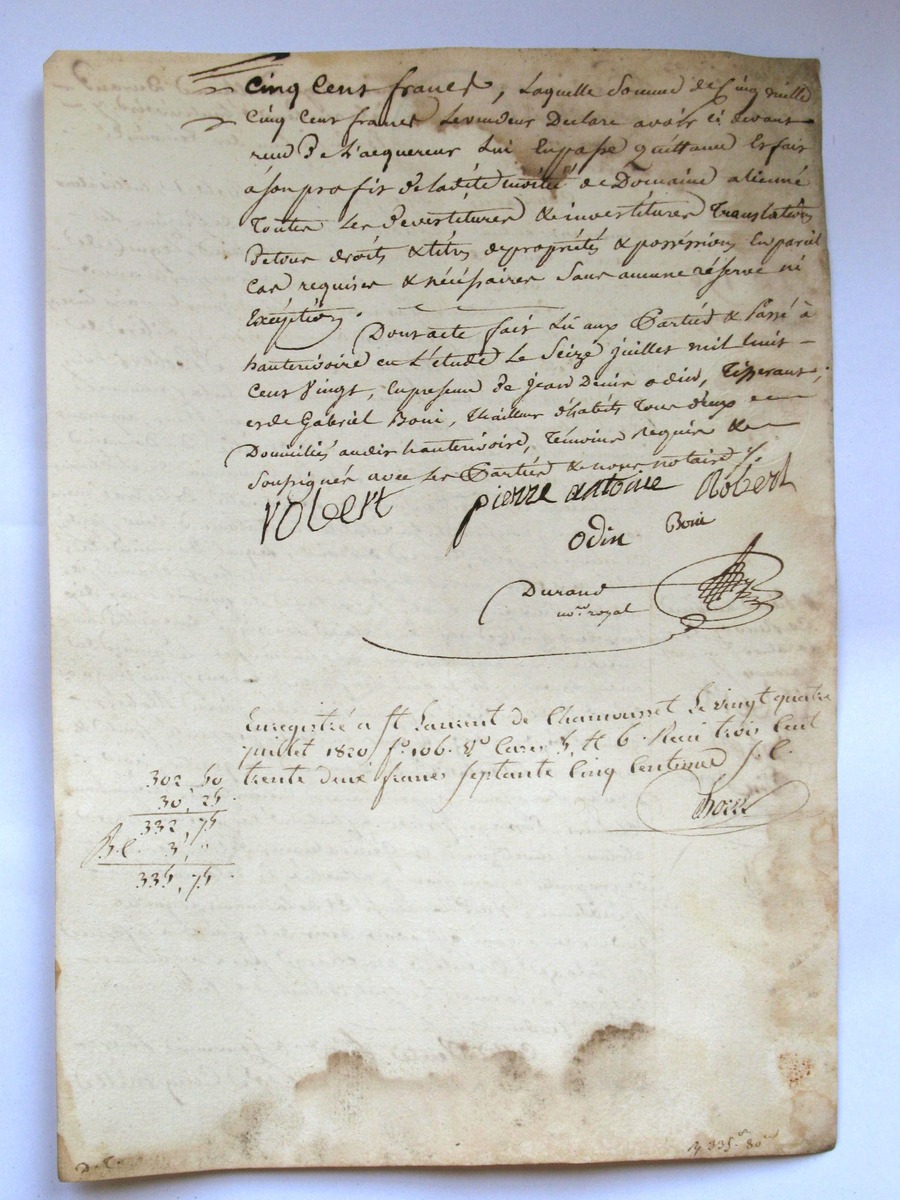 Cinq Cent francs, Laquelle Somme de Cinq mille
Cinq Cent francs Le vendeur Declare avoir ci devant
reçu De L'acquereur Lui En passe quittance Et fait
à son profit de ladite moitié de Domaine aliené
Toutes Les devestitures & investitures Translations
De tous droits & titres de propriétés & posséssions En pareil
Cas requises & nécéssaires Sans aucune réserve ni
Exception.
Dont acte fait Lu aux Parties & Passé à
hauterivoire en L'étude Le Seize juillet mil huit
Cent Vingt, En presence De jean Denis odin, Tisserant,
et de Gabriel Boni, Thailleur d'habits Tous deux
Domiciliés audit hauterivoire, Témoins Requis &
Soussignés avec Les Parties & nous notaire
robert pierre antoine Robert
odin Boni
Durand
nore royal
Enregistré a St Laurent de Chamousset Le vingt quatre
juillet 1820 fo 106. Vo Cases 5, et 6. Recu trois Cent
trente deux francs Septante Cinq Centimes S.C.
302, 50
30, 25
332, 75
3, "
335, 75
335 80